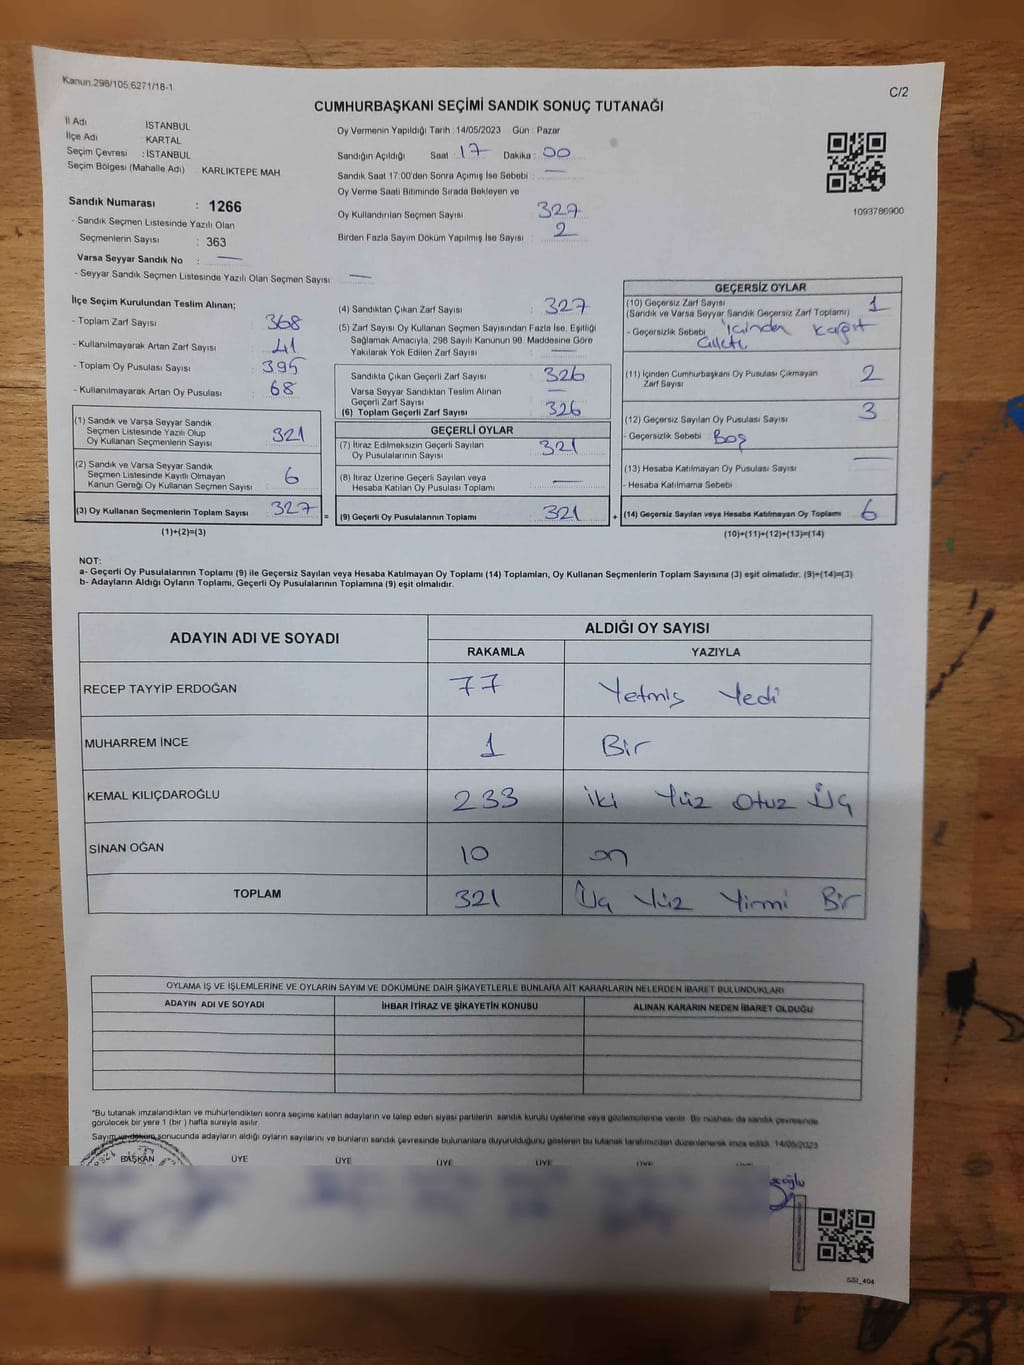 Kanun.298/105,6271/18-1
C/2
CUMHURBAŞKANI SEÇİMİ SANDIK SONUÇ TUTANAĞI
İl Adı İSTANBUL
İlçe Adı KARTAL
Seçim Çevresi : İSTANBUL
Seçim Bölgesi (Mahalle Adı) KARLIKTEPE MAH
Sandık Numarası : 1266
- Sandık Seçmen Listesinde Yazılı Olan
Seçmenlerin Sayısı : 363
Varsa Seyyar Sandık No : —
- Seyyar Sandık Seçmen Listesinde Yazılı Olan Seçmen Sayısı —
Oy Vermenin Yapıldığı Tarih : 14/05/2023 Gün : Pazar
Sandığın Açıldığı Saat : 17 Dakika : 00
Sandık Saat 17:00'den Sonra Açımış İse Sebebi : —
Oy Verme Saati Bitiminde Sırada Bekleyen ve
Oy Kullandırılan Seçmen Sayısı 327
Birden Fazla Sayım Döküm Yapılmış İse Sayısı : 2
1093786900
İlçe Seçim Kurulundan Teslim Alınan;
- Toplam Zarf Sayısı : 368
- Kullanılmayarak Artan Zarf Sayısı : 41
- Toplam Oy Pusulası Sayısı : 395
- Kullanılmayarak Artan Oy Pusulası : 68
(1) Sandık ve Varsa Seyyar Sandık
Seçmen Listesinde Yazılı Olup
Oy Kullanan Seçmenlerin Sayısı 321
(2) Sandık ve Varsa Seyyar Sandık
Seçmen Listesinde Kayıtlı Olmayan
Kanun Gereği Oy Kullanan Seçmen Sayısı 6
(3) Oy Kullanan Seçmenlerin Toplam Sayısı 327
(1)+(2)=(3)
(4) Sandıktan Çıkan Zarf Sayısı : 327
(5) Zarf Sayısı Oy Kullanan Seçmen Sayısından Fazla İse, Eşitliği
Sağlamak Amacıyla, 298 Sayılı Kanunun 98. Maddesine Göre
Yakılarak Yok Edilen Zarf Sayısı : —
Sandıkta Çıkan Geçerli Zarf Sayısı : 326
Varsa Seyyar Sandıktan Teslim Alınan
Geçerli Zarf Sayısı —
(6) Toplam Geçerli Zarf Sayısı : 326
GEÇERLİ OYLAR
(7) İtiraz Edilmeksizin Geçerli Sayılan
Oy Pusulalarının Sayısı : 321
(8) İtiraz Üzerine Geçerli Sayılan veya
Hesaba Katılan Oy Pusulası Toplamı : —
= (9) Geçerli Oy Pusulalarının Toplamı 321 +
GEÇERSİZ OYLAR
(10) Geçersiz Zarf Sayısı
(Sandık ve Varsa Seyyar Sandık Geçersiz Zarf Toplamı) 1
- Geçersizlik Sebebi içinden kağıt
(11) İçinden Cumhurbaşkanı Oy Pusulası Çıkmayan
Zarf Sayısı 2
(12) Geçersiz Sayılan Oy Pusulası Sayısı 3
- Geçersizlik Sebebi Boş
(13) Hesaba Katılmayan Oy Pusulası Sayısı —
- Hesaba Katılmama Sebebi
(14) Geçersiz Sayılan veya Hesaba Katılmayan Oy Toplamı 6
(10)+(11)+(12)+(13)=(14)
NOT:
a- Geçerli Oy Pusulalarının Toplamı (9) ile Geçersiz Sayılan veya Hesaba Katılmayan Oy Toplamı (14) Toplamları, Oy Kullanan Seçmenlerin Toplam Sayısına (3) eşit olmalıdır. (9)+(14)=(3)
b- Adayların Aldığı Oyların Toplamı, Geçerli Oy Pusulalarının Toplamına (9) eşit olmalıdır.
ADAYIN ADI VE SOYADI ALDIĞI OY SAYISI
RAKAMLA YAZIYLA
RECEP TAYYİP ERDOĞAN 77 Yetmiş Yedi
MUHARREM İNCE 1 Bir
KEMAL KILIÇDAROĞLU 233 iki Yüz Otuz Üç
SİNAN OĞAN 10 on
TOPLAM 321 Üç Yüz Yirmi Bir
OYLAMA İŞ VE İŞLEMLERİNE VE OYLARIN SAYIM VE DÖKÜMÜNE DAİR ŞİKAYETLERLE BUNLARA AİT KARARLARIN NELERDEN İBARET BULUNDUKLARI
ADAYIN ADI VE SOYADI İHBAR İTİRAZ VE ŞİKAYETİN KONUSU ALINAN KARARIN NEDEN İBARET OLDUĞU
*Bu tutanak imzalandıktan ve mühürlendikten sonra seçime katılan adayların ve talep eden siyasi partilerin sandık kurulu üyelerine veya gözlemcilerine verilir. Bir nüshası da sandık çevresinde
görülecek bir yere 1 (bir ) hafta süreyle asılır.
Sayım ve döküm sonucunda adayların aldığı oyların sayılarını ve bunların sandık çevresinde bulunanlara duyurulduğunu gösteren bu tutanak tarafımızdan düzenlenerek imza edildi. 14/05/2023
BAŞKAN ÜYE ÜYE ÜYE ÜYE ÜYE